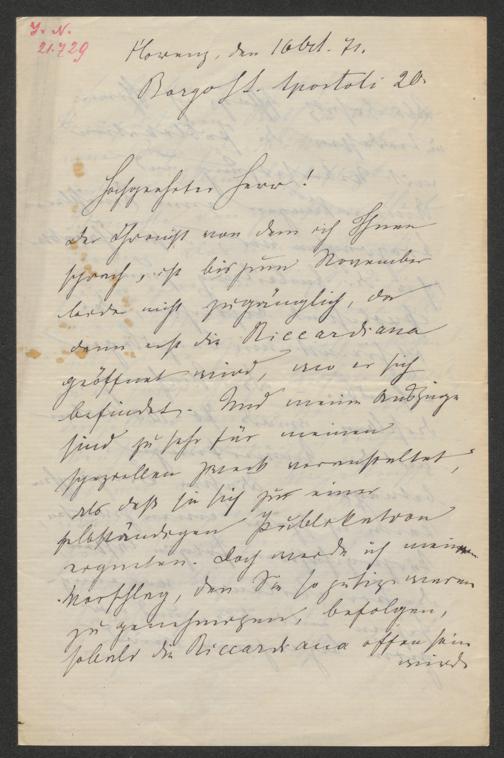 J. N.
21.729
Florenz, den 16 Oct. 71.
Borgo St. Apostoli 20.
Hochgeehrter Herr!
Der Chronist von dem ich Ihnen
sprach, ist bis zum November
leider nicht zugänglich, da
dann erst die Riccardiana
geöffnet wird, wo er sich
befindet. Und meine Auszüge
sind zu sehr für meinen
speziellen Zweck veranstaltet,
als daß sie sich zur einer
selbständigen Publikation
eigneten. Doch werde ich meinen
Vorschlag, den Sie so gütig waren
zu genehmigen, befolgen,
sobald die Riccardiana offen sein
wird